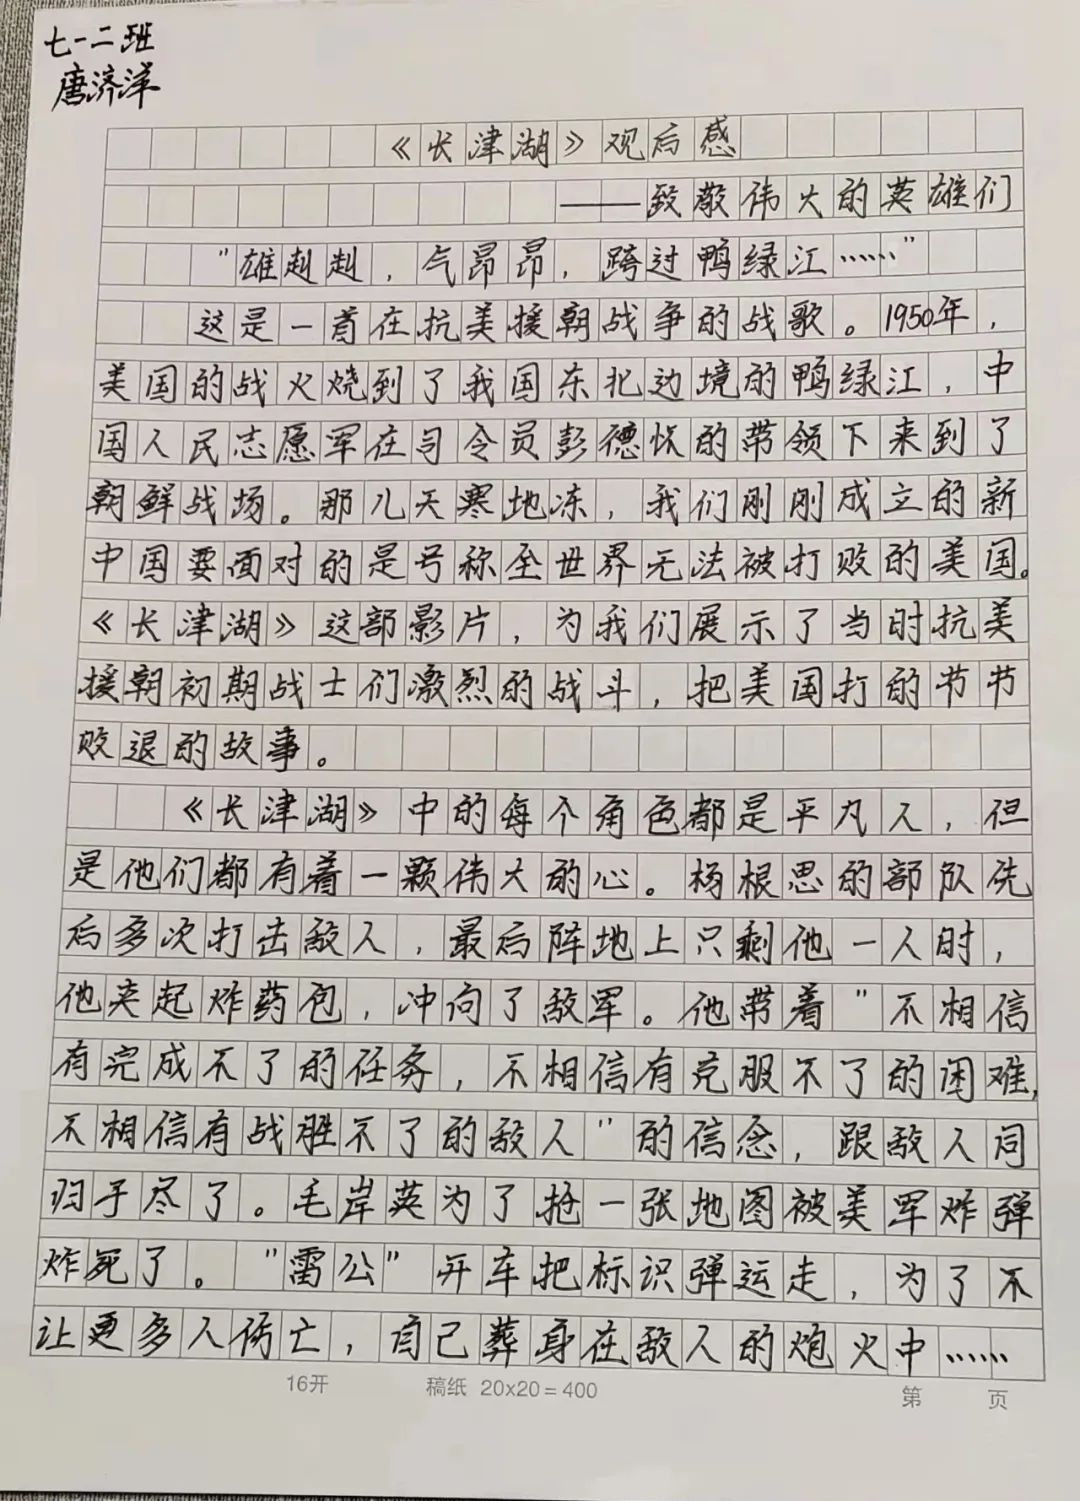 七-二班
唐济洋
《长津湖》观后感
——致敬伟大的英雄们
"雄赳赳，气昂昂，跨过鸭绿江……"
这是一首在抗美援朝战争的战歌。1950年，
美国的战火烧到了我国东北边境的鸭绿江，中
国人民志愿军在司令员彭德怀的带领下来到了
朝鲜战场。那儿天寒地冻，我们刚刚成立的新
中国要面对的是号称全世界无法被打败的美国。
《长津湖》这部影片，为我们展示了当时抗美
援朝初期战士们激烈的战斗，把美国打的节节
败退的故事。
《长津湖》中的每个角色都是平凡人，但
是他们都有着一颗伟大的心。杨根思的部队先
后多次打击敌人，最后阵地上只剩他一人时，
他夹起炸药包，冲向了敌军。他带着"不相信
有完成不了的任务，不相信有克服不了的困难，
不相信有战胜不了的敌人"的信念，跟敌人同
归于尽了。毛岸英为了抢一张地图被美军炸弹
炸死了。"雷公"开车把标识弹运走，为了不
让更多人伤亡，自己葬身在敌人的炮火中……
16开 稿纸 20×20=400 第 页